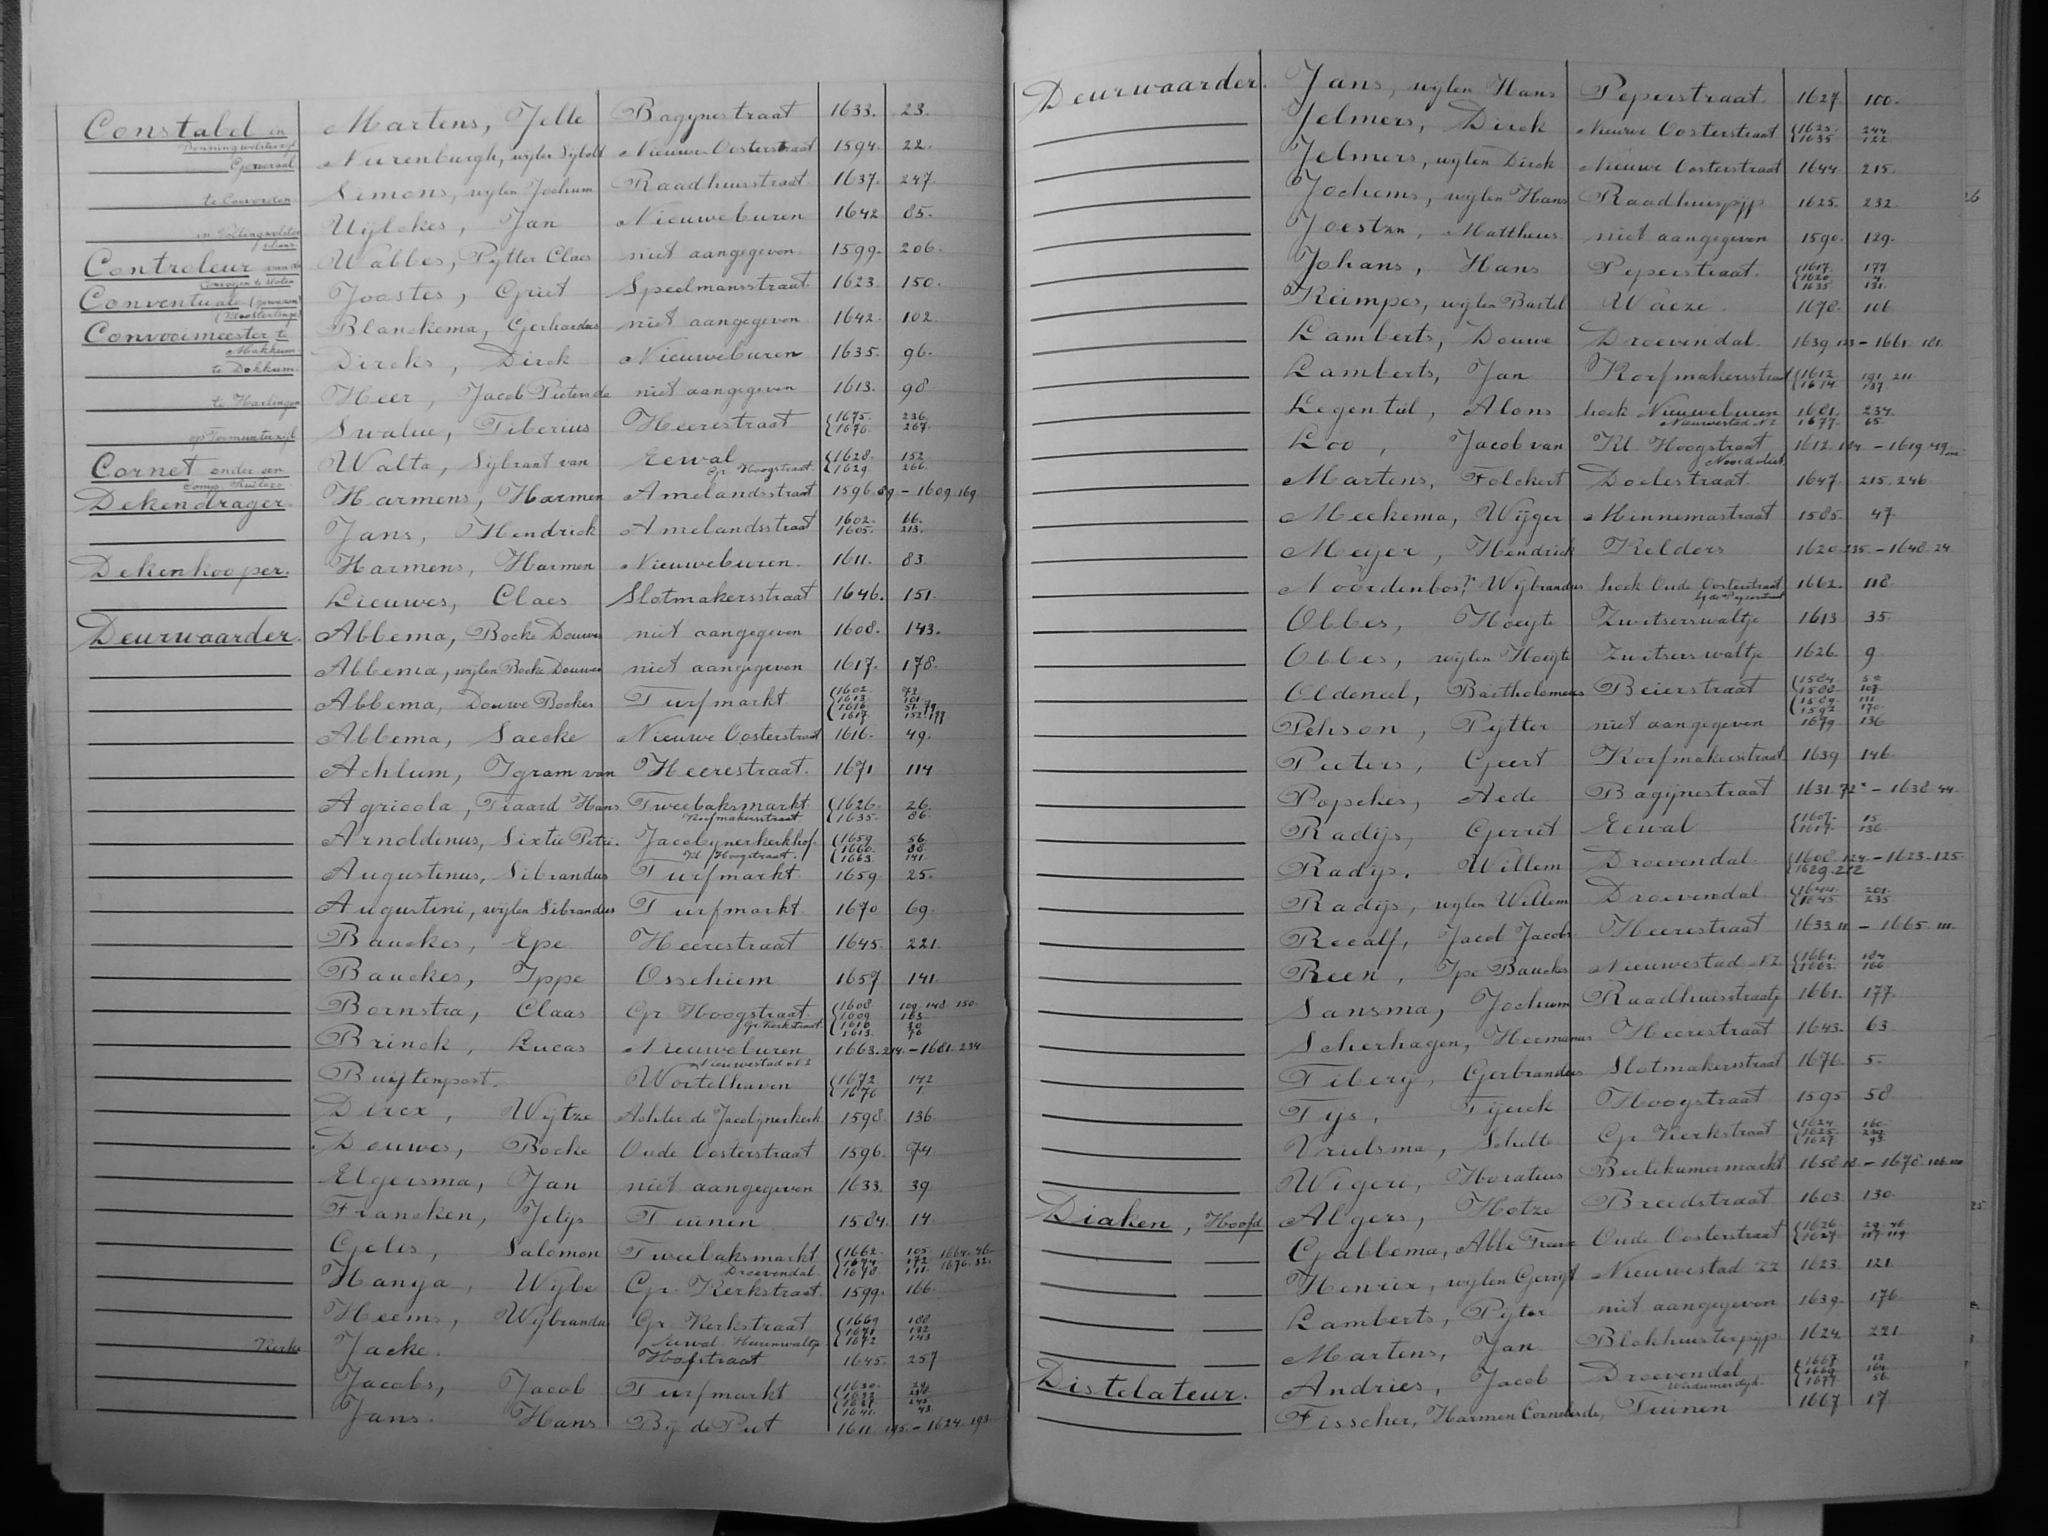 Constabel in Martens, Jelle Bagynestraat 1633. 23.
Nurenburgh, wijlen Sijbolt Nieuwe Oosterstraat 1594. 22.
Generaal
Simons, wijlen Jochum Raadhuisstraat 1637. 247.
te Coevorden
Uijlckes, Jan Nieuweburen 1642 85.
Wabbes, Pijtter Claes niet aangegeven 1599. 206.
Controleur van de
Convoyen te Sloten
Joostes, Griet Speelmansstraat 1623. 150.
Conventuale (gewezen)
(Kloosterlinge)
Blanckema, Gerhardus niet aangegeven 1642. 102.
Convooimeester te
Makkum
Dircks, Dirck Nieuweburen 1635. 96.
te Dokkum
Heer, Jacob Pieters de niet aangegeven 1613. 98
te Harlingen
Swalue, Tiberius Heerestraat 1675. 236.
1676. 267.
op Terminaterzijl
Walta, Sijbrant van Eewal 1628. 152
Gr. Hoogstraat 1629. 266.
Cornet onder een
comp. Ruiters
Harmens, Harmen Amelandsstraat 1596.89 - 1609.169
Dekendrager.
Jans, Hendrick Amelandsstraat 1602. 66.
1605. 213.
Dekenkooper. Harmens, Harmen Nieuweburen. 1611. 83.
Lieuwes, Claes Slotmakersstraat 1646. 151.
Deurwaarder. Abbema, Bocke Douwes niet aangegeven 1608. 143.
Abbema, wijlen Bocke Douwes niet aangegeven 1617. 178.
Abbema, Douwe Bockes Turfmarkt 1602. 72.
1613. 101.
1616 51.79.
1617. 152.177
Abbema, Saecke Nieuwe Oosterstraat 1616. 49.
Achlum, Igram van Heerestraat. 1671 114
Agricola, Tiaard Hans Tweebaksmarkt 1626. 26.
Korfmakersstraat 1635. 86.
Arnoldinus, Sixtie Petri. Jacobynerkerkhof. 1659 56.
Kl. Hoogstraat. 1660. 88.
1663. 141.
Augustinus, Sibrandus Turfmarkt 1659 25.
Augustini, wijlen Sibrandus Turfmarkt. 1670 69.
Bauckes, Epe Heerestraat 1645. 221.
Bauckes, Ippe Ossehiem 1657 141.
Bornstra, Claas Gr Hoogstraat 1608 109.148.150.
Gr. Kerkstraat 1609 163.
1616 30
1613. 76
Brinck, Lucas Nieuweburen 1663.214.-1681.234
Nieuwestad NZ
Buijtenpost. Wortelhaven 1672. 142
1676 1.
Dircx, Wijtze Achter de Jacobijnerkerk 1598. 136
Douwes, Bocke Oude Oosterstraat 1596. 74
Elgersma, Jan niet aangegeven 1633. 39
Francken, Jelijs Tuinen 1584. 14.
Gelis, Salomon Tweebaksmarkt 1662. 105 1664.46.
Droevendal 1674. 172 1676.32.
1678. 111.
Hanya, Wijbe Gr. Kerkstraat. 1599. 166
Heems, Wijbrandus Gr. Kerkstraat 1669 188
1671. 132
1672. 143
Kerke Jacke. Hofstraat 1645. 257
Jacobs, Jacob Turfmarkt 1630.
1641. 43.
Jans. Hans Bij de Put 1611 195-1624.193.
Deurwaarder. Jans, wijlen Hans Peperstraat. 1627. 100.
Jelmers, Dirck Nieuwe Oosterstraat 1625. 244.
1635 122
Jelmers, wijlen Dirck Nieuwe Oosterstraat 1644 215.
Jochems, wijlen Hans Raadhuispijp 1625. 232.
Joesten, Mattheus niet aangegeven 1590. 129.
Johans, Hans Peperstraat. 1617. 177
1620.
1635. 131.
Reimpes, wijlen Bartel Waeze. 1678. 101
Lamberts, Douwe Droevendal. 1639 123-1661. 181.
Lamberts, Jan Korfmakersstraat 1612. 191.211
1614 137
Legentil, Alons hoek Nieuweburen 1681. 234.
Nieuwestad NZ 1677. 65.
Loo, Jacob van Kl. Hoogstraat 1612.184.-1619.49
Noordvliet
Martens, Folckert Doelestraat. 1647. 215.246.
Meckema, Wijger Minnemastraat 1585. 47.
Meijer, Hendrick Kelders 1620.235.-1648.24
Noordenbos? Wijbrandus hoek Oude Oosterstraat 1662. 118
bij de Peperstraat
Obbes, Hoeyte Zwitserswaltje 1613 35.
Obbes, wijlen Hoeijte Zwitserswaltje 1626. 9.
Oldeneel, Bartholomeus Beierstraat 1584. 50
1588. 107
1589. 111
1592 170.
Pehson, Pijtter niet aangegeven 1679 136
Pieters, Geert Korfmakersstraat 1639 146.
Popckes, Aede Bagijnestraat 1631.72*-1638.44.
Radijs, Gerrit Eewal 1607. 15.
1617. 136.
Radijs, Willem Droevendal. 1608.124.-1623.125.
1629.212
Radijs, wijlen Willem Droevendal 1644. 201.
1645. 235.
Recalf, Jacob Jacobs Heerestraat 1633.11-1665.111.
Reen, Ipe Bauckes Nieuwestad NZ 1661. 184
1663. 166
Sansma, Jochum Raadhuisstraatje 1661. 177.
Scherhagen, Hermanus Heerestraat 1643. 63
Tiberij, Gerbrandus Slotmakersstraat 1676 5.
Tijs, Tijerck Hoogstraat 1595 58
Vrielsma, Schelte Gr Kerkstraat 1624 160
1625. 239
1627. 93.
Wigeri, Horatius Berlikumermarkt 1658.18.-1678.
Diaken, Hoofd Algers, Hotze Breedstraat 1603. 130.
Gabbema, Abbe Frans Oude Oosterstraat 1626. 29.46.
1627.
Henrix, wijlen Gerrijt Nieuwestad ZZ 1623. 121.
Lamberts, Pijter niet aangegeven 1639. 176.
Martens, Jan Blokhuisterpijp 1624. 221.
Distelateur. Andries, Jacob Droevendal 1667 12
Wirdumerdijk. 1669 164.
1677. 56.
Fisscher, Harmen Cornelis de, Tuinen 1667 17.
26
25